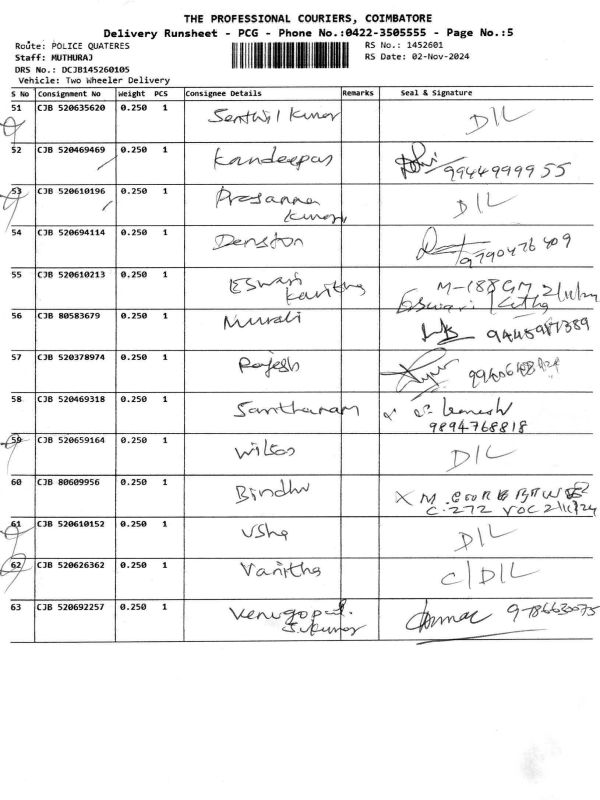 THE PROFESSIONAL COURIERS, COIMBATORE
Delivery Runsheet - PCG - Phone No.:0422-3505555 - Page No.:5
Route: POLICE QUATERES
RS No.: 1452601
Staff: MUTHURAJ
RS Date: 02-Nov-2024
DRS No.: DCJB145260105
Vehicle: Two Wheeler Delivery
S No Consignment No Weight PCS Consignee Details Remarks Seal & Signature
51 CJB 520635620 0.250 1 Senthil Kumar D/L
52 CJB 520469469 0.250 1 Kandeepan 9944999955
53 CJB 520610196 0.250 1 Prasanna D/L
Kumar
54 CJB 520694114 0.250 1 Denston 9790476409
55 CJB 520610213 0.250 1 Eswari M-188 GM 2/11/24
Kavitha Eswari
56 CJB 80583679 0.250 1 Murali
57 CJB 520378974 0.250 1 Rajesh
58 CJB 520469318 0.250 1 Santharam
9894768818
59 CJB 520659164 0.250 1 Wilson D/L
60 CJB 80609956 0.250 1 Bindhu X M.
C-272 VOC 2/11/24
61 CJB 520610152 0.250 1 Usha D/L
62 CJB 520626362 0.250 1 Vanitha C/D/L
63 CJB 520692257 0.250 1 Venugopal. 9786630075
S. Kumar